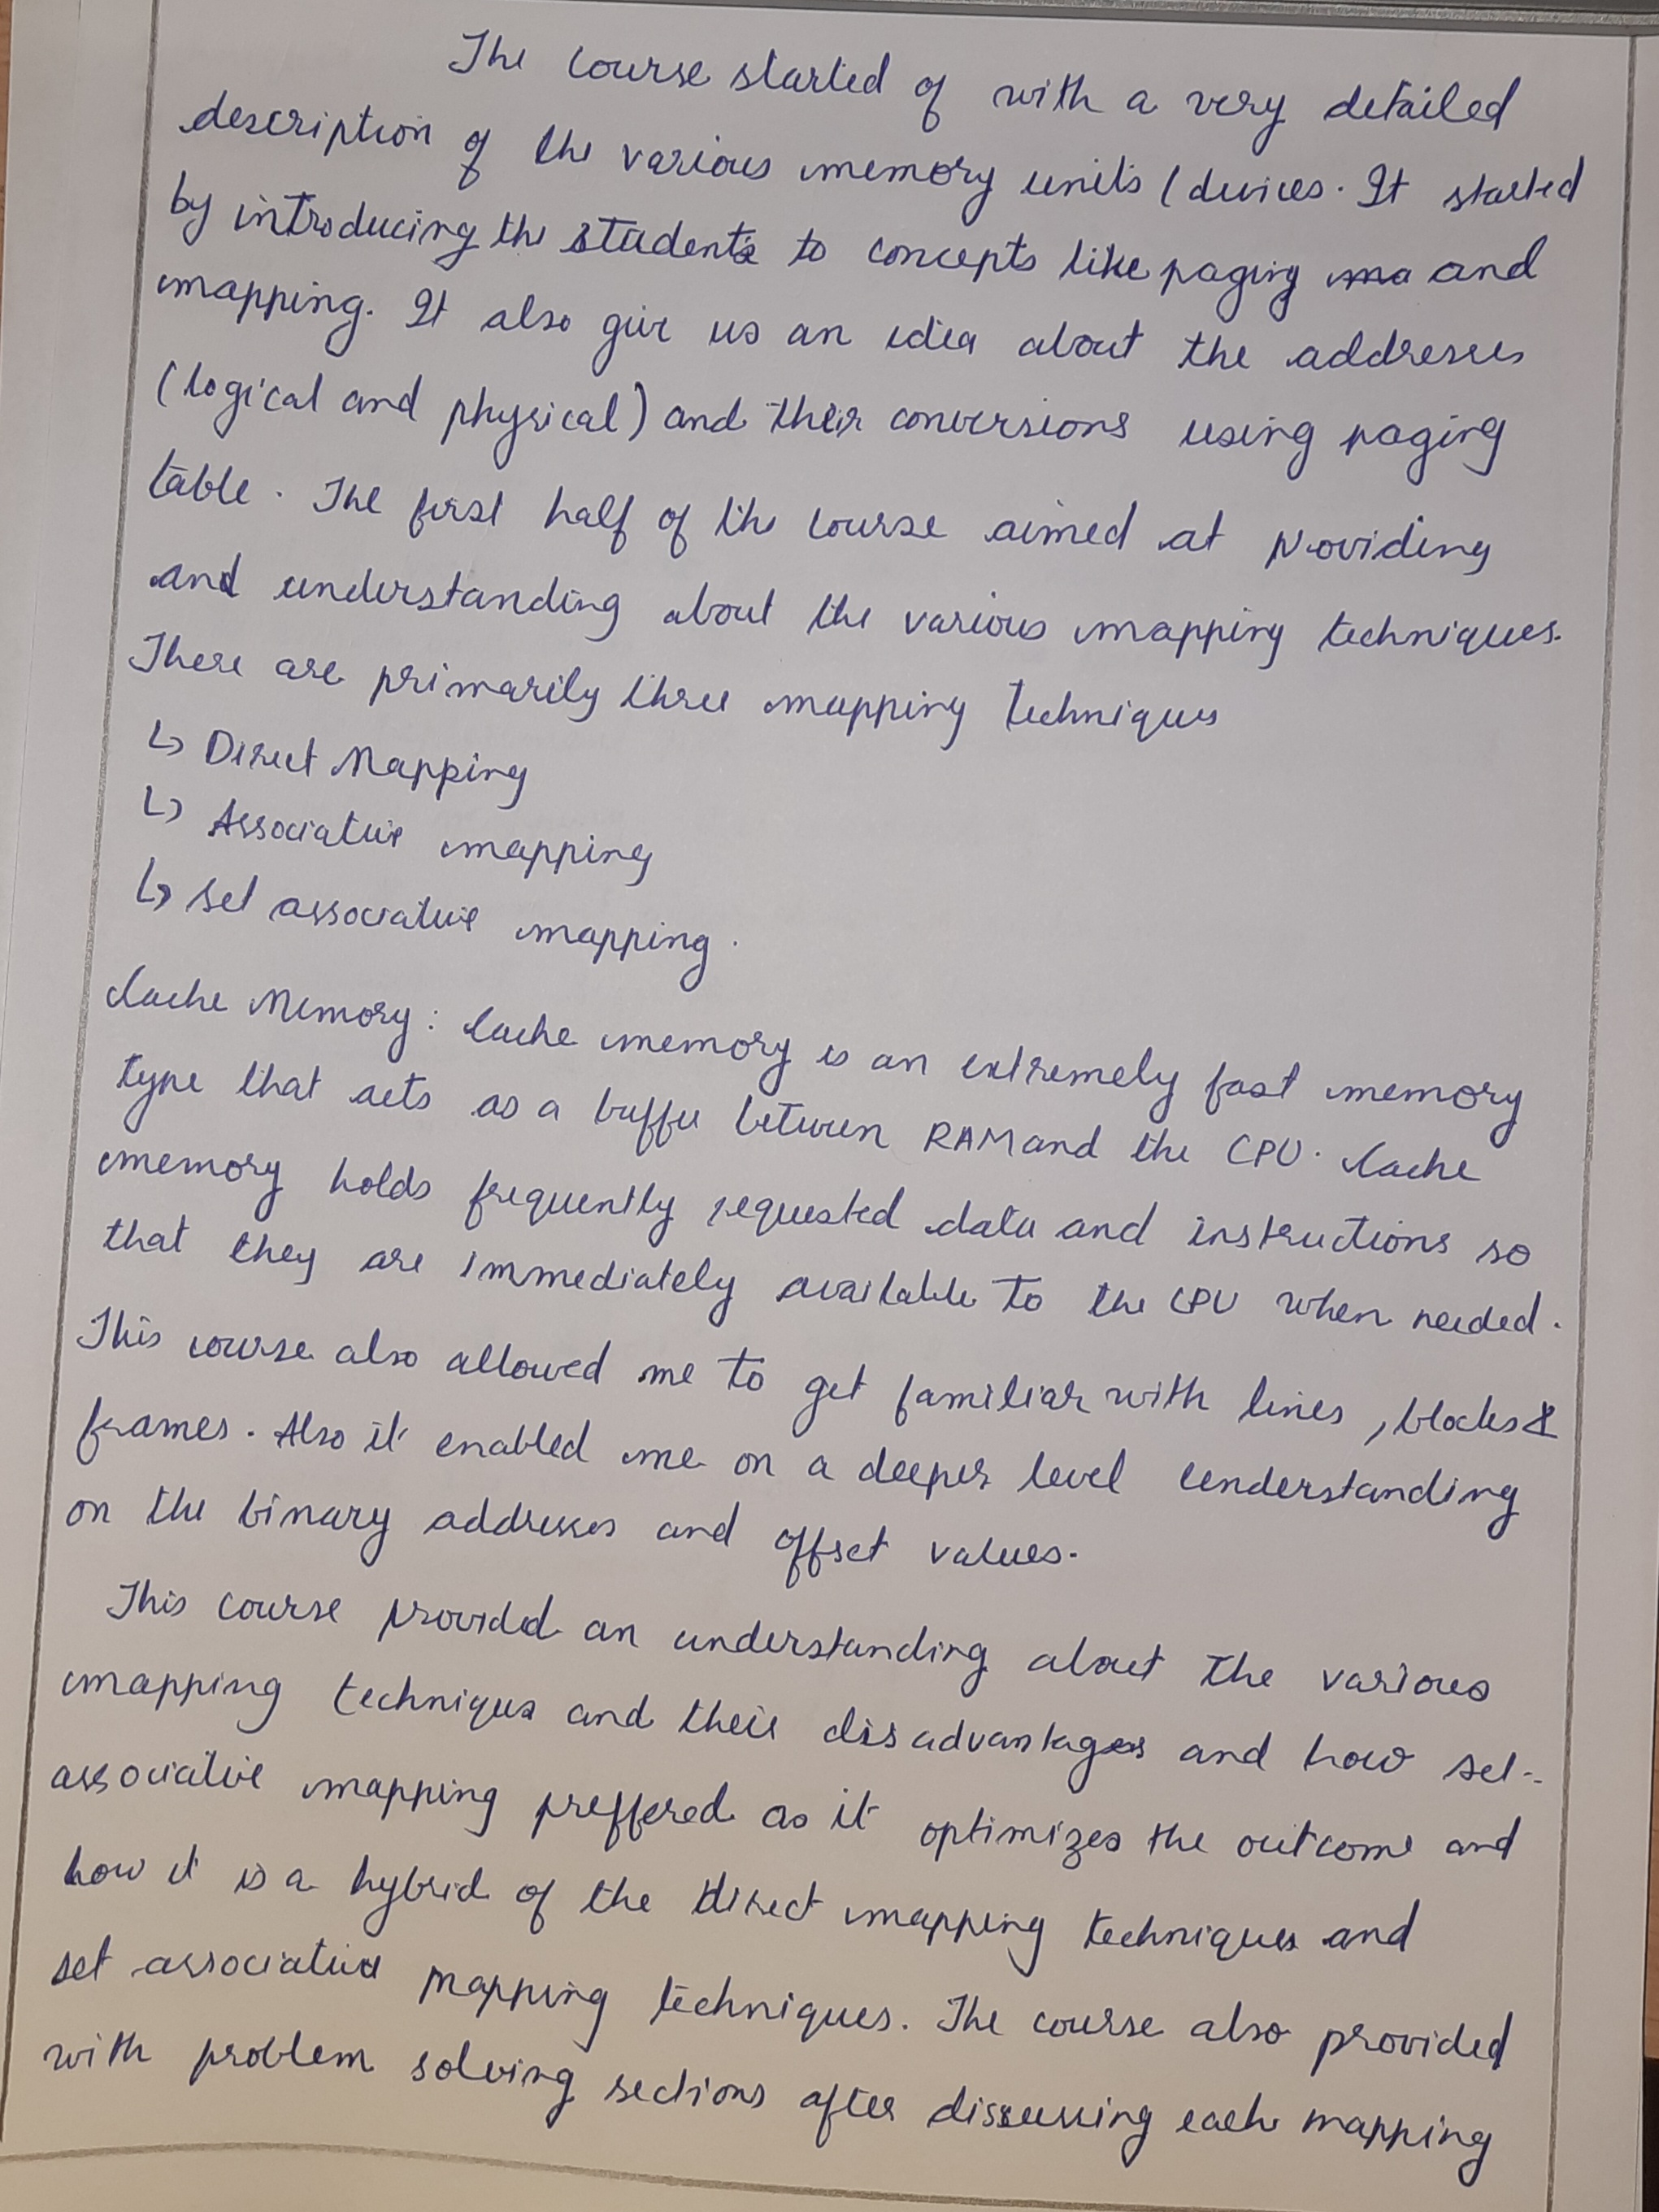 The course started of with a very detailed
description of the various memory units / devices. It started
by introducing the students to concepts like paging ma and
mapping. It also give us an idea about the addresses
(logical and physical) and their conversions using paging
table. The first half of the course aimed at providing
and understanding about the various mapping techniques.
There are primarily three mapping techniques
↳ Direct Mapping
↳ Associative mapping
↳ set associative mapping.
Cache Memory: Cache memory is an extremely fast memory
type that acts as a buffer between RAM and the CPU. Cache
memory holds frequently requested data and instructions so
that they are immediately available to the CPU when needed.
This course also allowed me to get familiar with lines, blocks &
frames. Also it enabled me on a deeper level understanding
on the binary addresses and offset values.
This course provided an understanding about the various
mapping techniques and their disadvantages and how set-
associative mapping preffered as it optimizes the outcome and
how it is a hybrid of the direct mapping techniques and
set associative mapping techniques. The course also provided
with problem solving sections after discussing each mapping